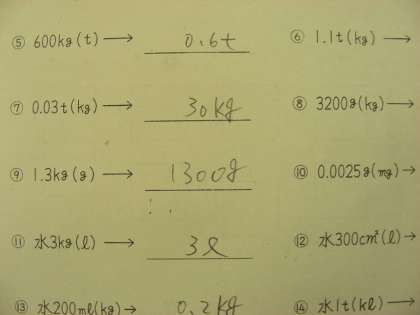 ⑤ 600kg(t) → 0.6t ⑥ 1.1t(kg) →
⑦ 0.03t(kg) → 30kg ⑧ 3200g(kg) →
⑨ 1.3kg(g) → 1300g ⑩ 0.0025g(mg) →
⑪ 水3kg(ℓ) → 3ℓ ⑫ 水300cm³(ℓ) →
⑬ 水200mℓ(kg) → 0.2kg ⑭ 水1t(kℓ) →